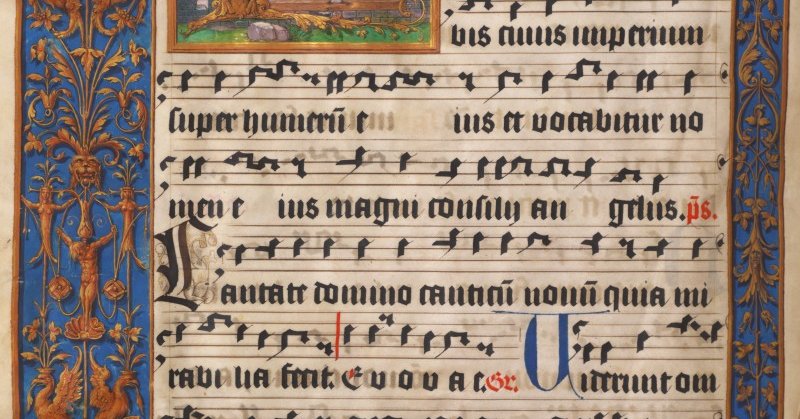 bis cuius imperium
super humerū e ius et vocabitur no
men e ius magni consilij an gelus. p̄s.
Cantate domino canticū nouū quia mi
rabi lia fecit. Evovae. Gr. Viderunt om